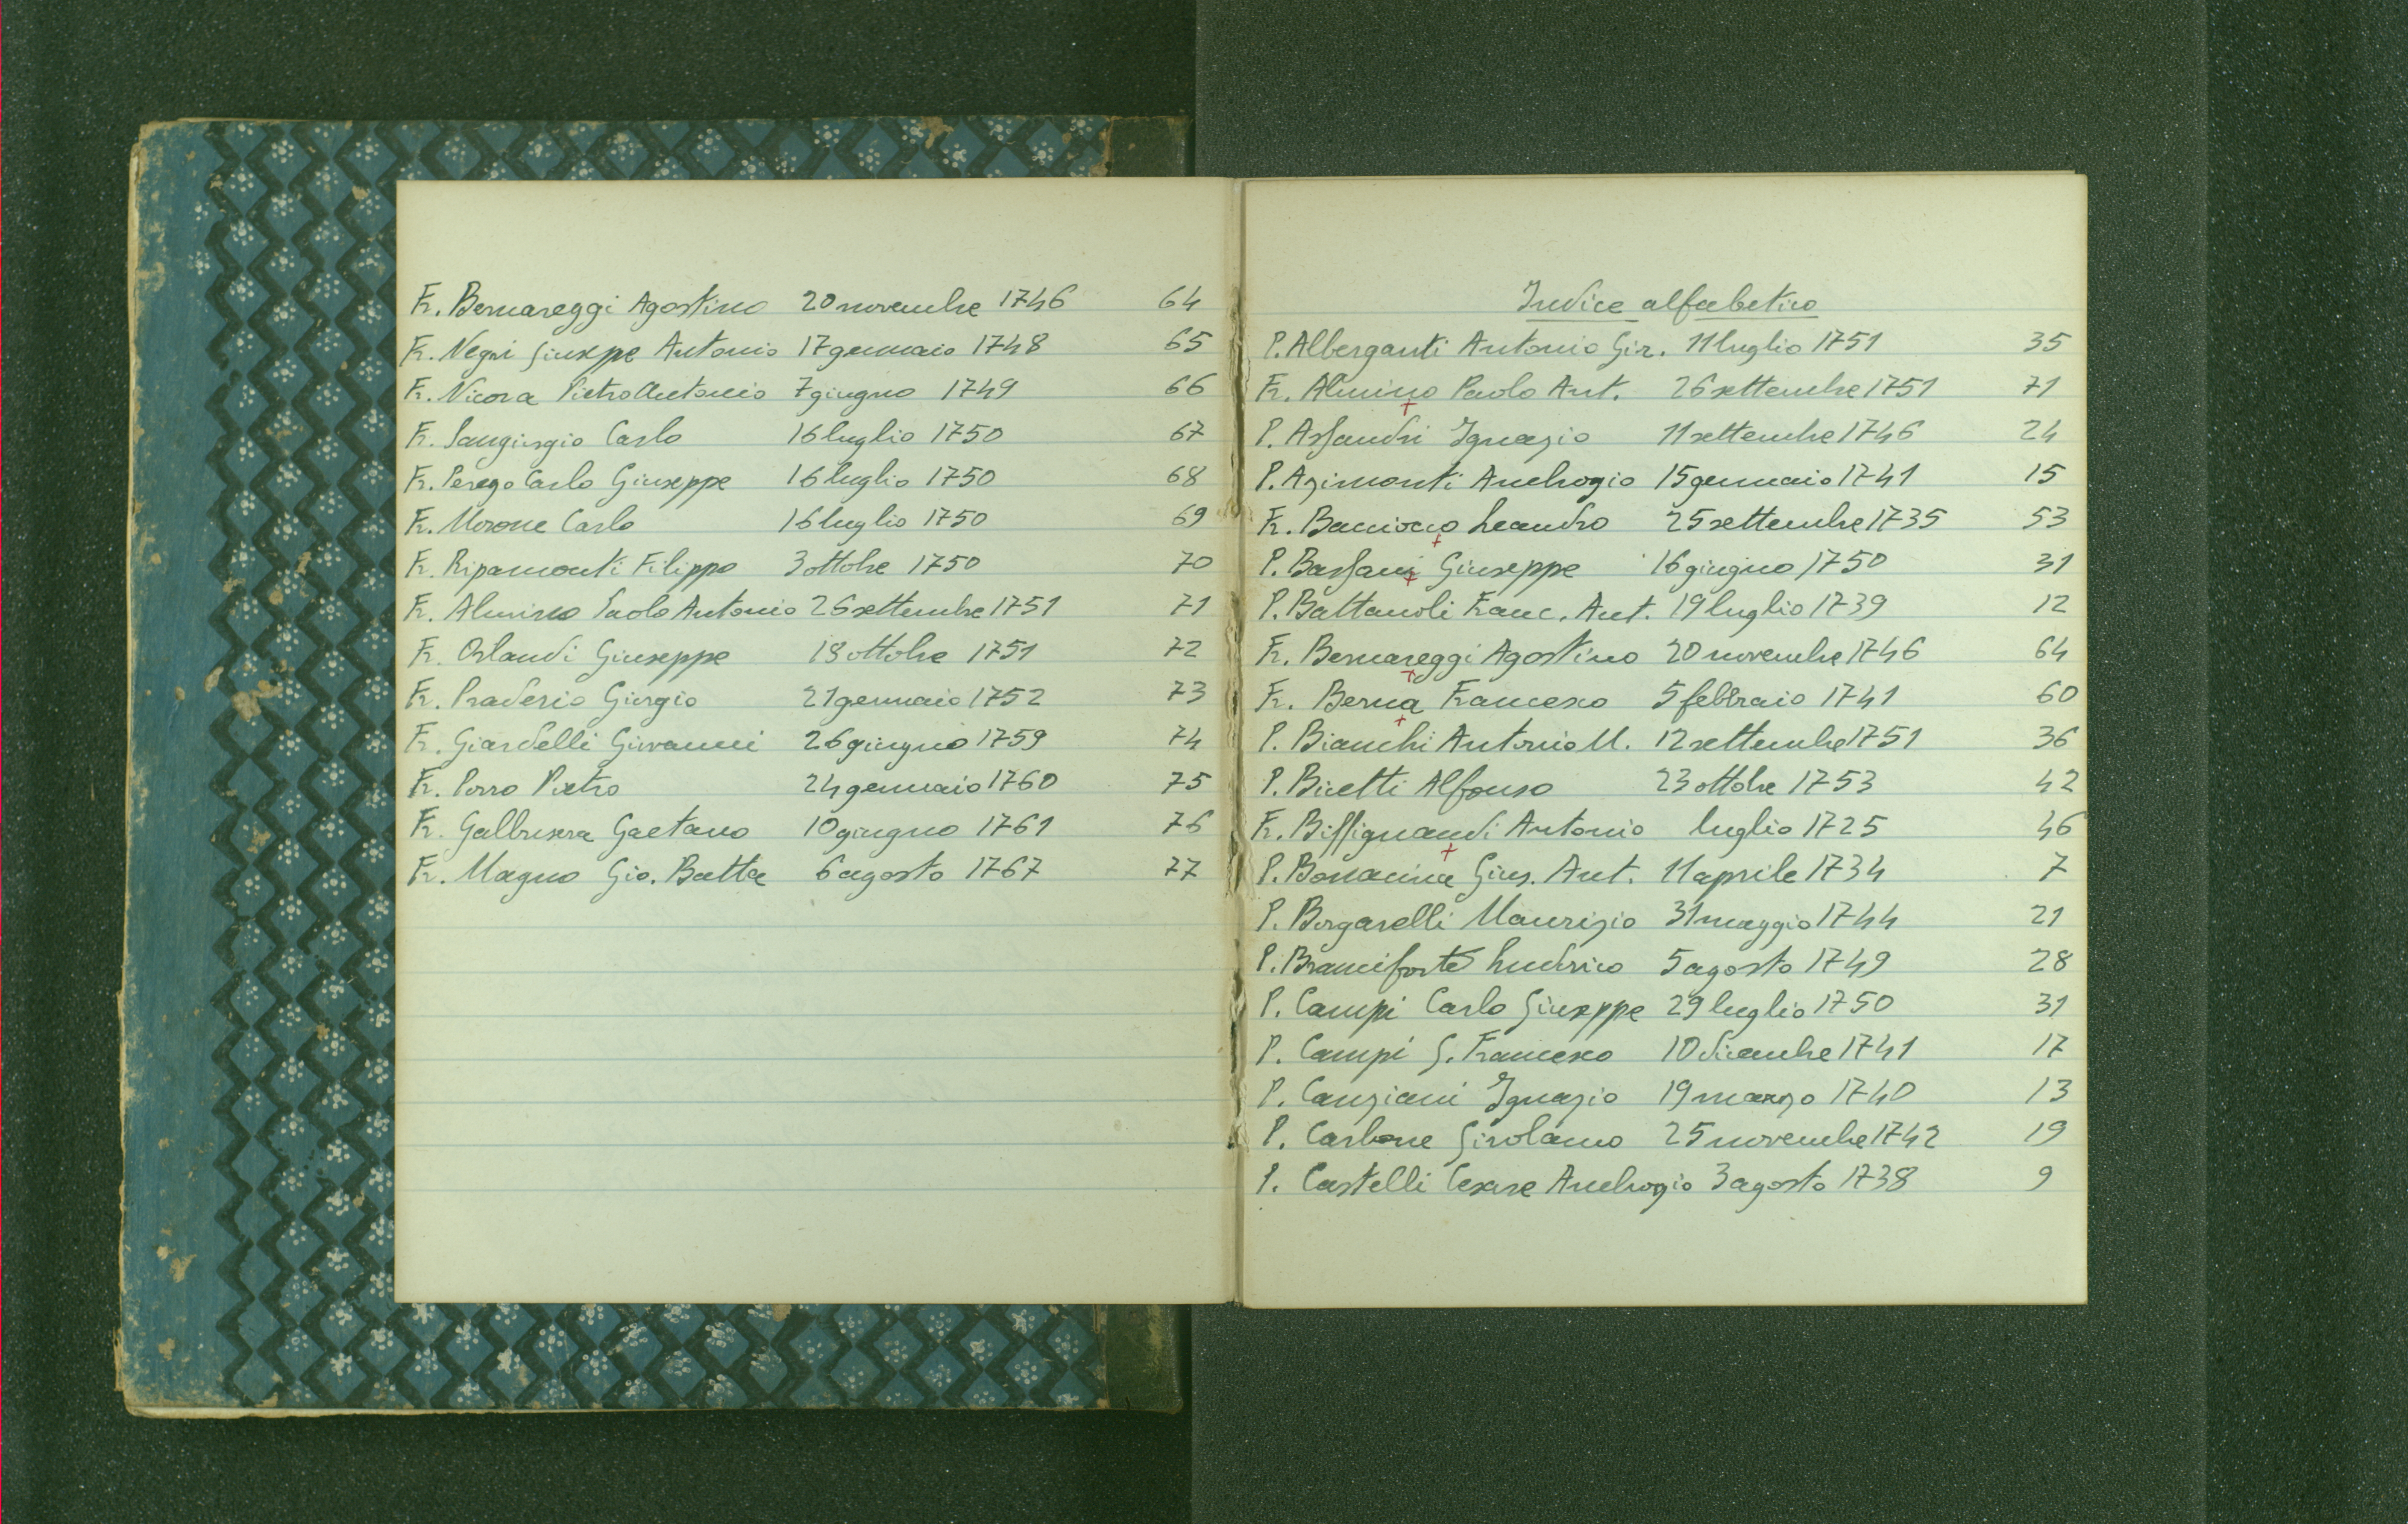 Fr. Bernareggi Agostino 20 novembre 1746 64
Fr. Negri Giuseppe Antonio 17 gennaio 1748 65
Fr. Nicora Pietro Antonio 7 giugno 1749 66
Fr. Sangiorgio Carlo 16 luglio 1750 67
Fr. Perego Carlo Giuseppe 16 luglio 1750 68
Fr. Morone Carlo 16 luglio 1750 69
Fr. Ripamonti Filippo 3 ottobre 1750 70
Fr. Almino Paolo Antonio 26 settembre 1751 71
Fr. Orlandi Giuseppe 18 ottobre 1751 72
Fr. Praderio Giorgio 21 gennaio 1752 73
Fr. Giardelli Giovanni 26 giugno 1759 74
Fr. Porro Pietro 24 gennaio 1760 75
Fr. Galbusera Gaetano 10 giugno 1761 76
Fr. Magno Gio. Batta 6 agosto 1767 77
Indice alfabetico
P. Alberganti Antonio Gir. 11 luglio 1751 35
Fr. Almino Paolo Ant. 26 settembre 1751 71
P. Assandri Ignazio 11 settembre 1746 24
P. Azimonti Ambrogio 15 gennaio 1741 15
Fr. Bacciocco Leandro 25 settembre 1735 53
P. Bassani Giuseppe 16 giugno 1750 31
P. Battanoli Franc. Ant. 19 luglio 1739 12
Fr. Bernareggi Agostino 20 novembre 1746 64
Fr. Berna Francesco 5 febbraio 1741 60
P. Bianchi Antonio M. 12 settembre 1751 36
P. Bicetti Alfonso 23 ottobre 1753 42
Fr. Biffignandi Antonio luglio 1725 46
P. Bonacina Gius. Ant. 11 aprile 1734 7
P. Borgarelli Maurizio 31 maggio 1744 21
P. Branciforte Ludovico 5 agosto 1749 28
P. Campi Carlo Giuseppe 29 luglio 1750 31
P. Campi G. Francesco 10 dicembre 1741 17
P. Canziani Ignazio 19 marzo 1740 13
P. Carbone Girolamo 25 novembre 1742 19
P. Castelli Cesare Ambrogio 3 agosto 1738 9